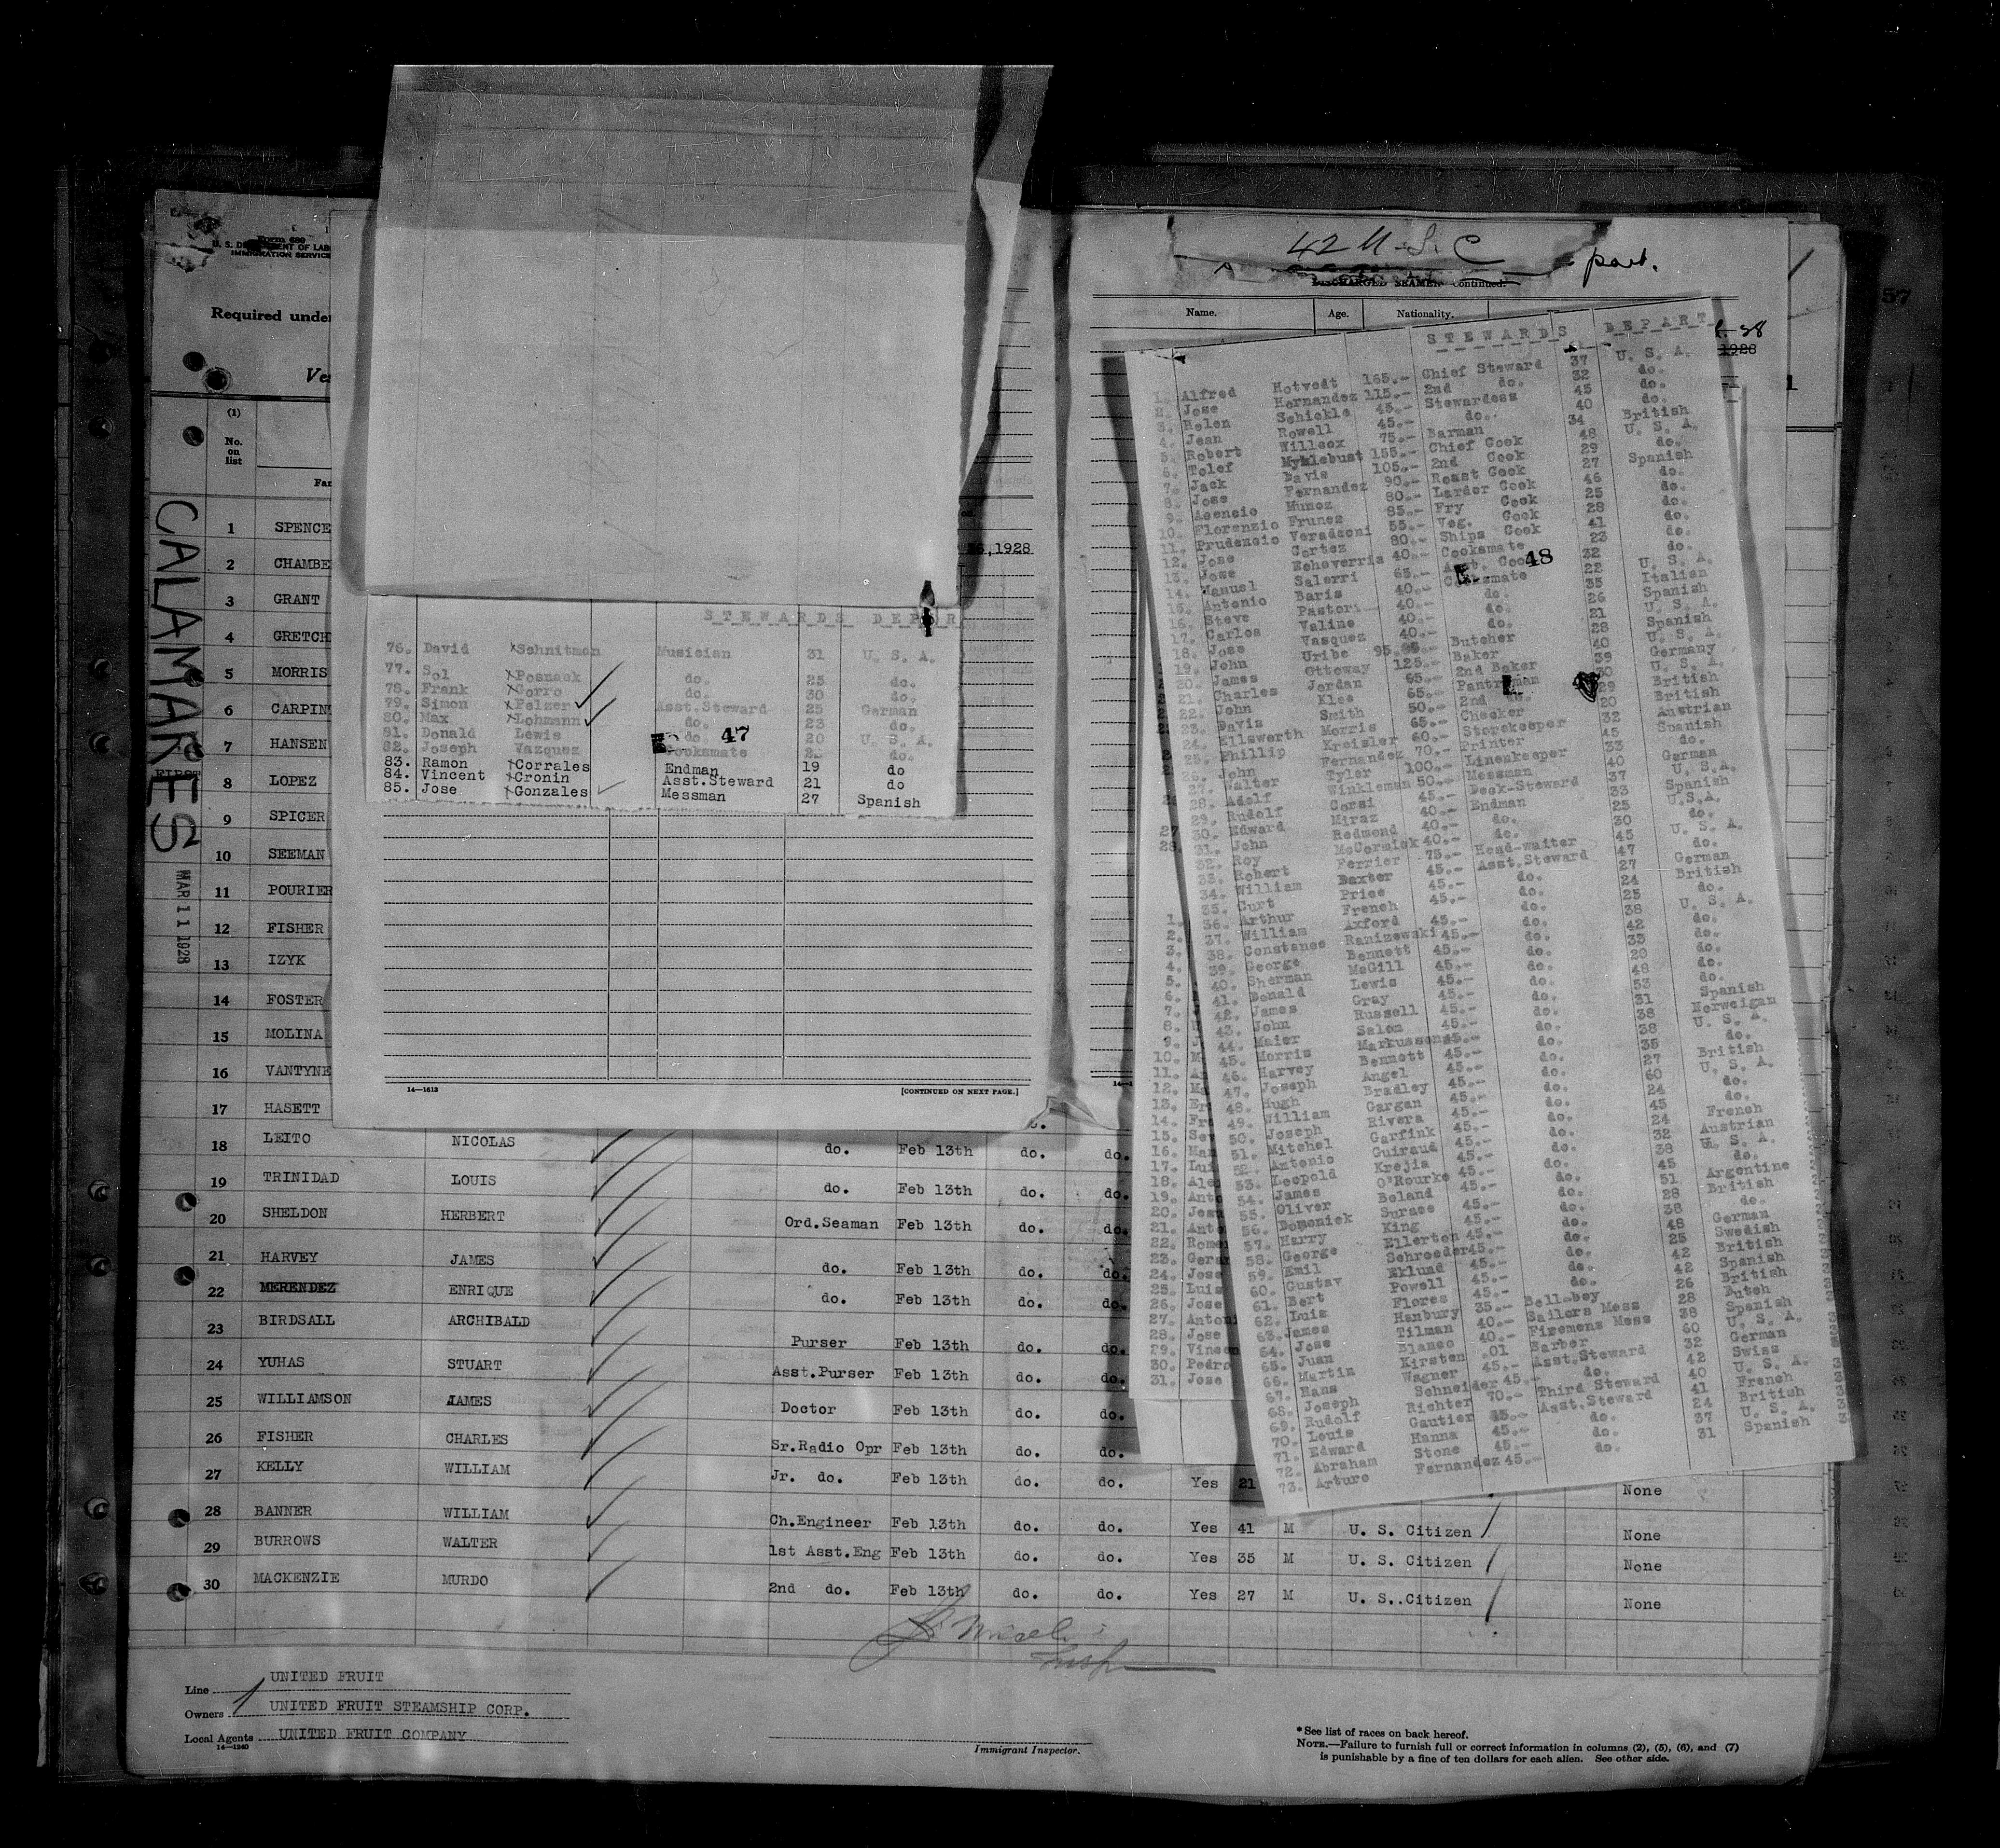 Form 689
U. S. DEPARTMENT OF LAB
IMMIGRATION SERVICE
Required unde
Ve
(1)
No. on list
Fa
CALAMARES
MAR 11 1928
1 SPENCE
2 CHAMBE
3 GRANT
4 GRETCH
5 MORRIS
6 CARPIN
7 HANSEN
8 LOPEZ
9 SPICER
10 SEEMAN
11 POURIER
12 FISHER
13 IZYK
14 FOSTER
15 MOLINA
16 VANTYNE
17 HASETT
18 LEITO NICOLAS do. Feb 13th do. do.
19 TRINIDAD LOUIS do. Feb 13th do. do.
20 SHELDON HERBERT Ord.Seaman Feb 13th do. do.
21 HARVEY JAMES do. Feb 13th do. do.
22 MERENDEZ ENRIQUE do. Feb 13th do. do.
23 BIRDSALL ARCHIBALD Purser Feb 13th do. do.
24 YUHAS STUART Asst.Purser Feb 13th do. do.
25 WILLIAMSON JAMES Doctor Feb 13th do. do.
26 FISHER CHARLES Sr.Radio Opr Feb 13th do. do.
27 KELLY WILLIAM Jr. do. Feb 13th do. do. Yes 21 None
28 BANNER WILLIAM Ch.Engineer Feb 13th do. do. Yes 41 M U. S. Citizen None
29 BURROWS WALTER 1st Asst.Eng Feb 13th do. do. Yes 35 M U. S. Citizen None
30 MACKENZIE MURDO 2nd do. Feb 13th do. do. Yes 27 M U. S..Citizen None
Line UNITED FRUIT
Owners UNITED FRUIT STEAMSHIP CORP.
Local Agents UNITED FRUIT COMPANY
14—1240
Immigrant Inspector.
* See list of races on back hereof.
NOTE.—Failure to furnish full or correct information in columns (2), (5), (6), and (7)
is punishable by a fine of ten dollars for each alien. See other side.
,1928
STEWARDS DEPAR
76. David Schnitman Musician 31 U. S. A.
77. Sol Posnack do. 25 do.
78. Frank Corro do. 30 do.
79. Simon Pelzer Asst.Steward 25 German
80. Max Lohmann do. 23 do.
81. Donald Lewis do. 20 U. S. A.
47
82. Joseph Vazquez Cooksmate do.
83. Ramon Corrales Endman 19 do
84. Vincent Cronin Asst.Steward 21 do
85. Jose Gonzales Messman 27 Spanish
14—1613
[CONTINUED ON NEXT PAGE.]
42 U.S.C
part.
DISCHARGED SEAMEN continued.
Name. Age. Nationality.
1928
57
STEWARDS DEPART
1. Alfred Hotvedt 165.- Chief Steward 37 U. S. A.
2. Jose Hernandez 115.- 2nd do. 32 do.
3. Helen Schickle 45.- Stewardess 45 do.
4. Jean Rowell 45.- do. 40 do.
5. Robert Willcox 75.- Barman 34 British
6. Tolef Myklebust 155.- Chief Cook 48 U. S. A.
7. Jack Davis 105.- 2nd Cook 29 do.
8. Jose Fernandez 90.- Roast Cook 27 Spanish
9. Asencio Munoz 80.- Larder Cook 46 do.
10. Florenzio Frunez 85.- Fry Cook 25 do.
11. Prudencio Veradzoni 55.- Veg. Cook 28 do.
12. Jose Cortez 80.- Ships Cook 41 do.
13. Jose Echeverria 40.- Cooksmate 23 do.
14. Manuel Salerri 65.- Asst. Cook 32 do.
48
15. Antonio Baris 40.- Cooksmate 22 U. S. A.
16. Steve Pastori 40.- do. 35 Italian
17. Carlos Valine 40.- do. 26 Spanish
18. Jose Vasquez 40.- do. 21 U. S. A.
19. John Uribe 95. Butcher 28 Spanish
20. James Ottoway 125.- Baker 40 U. S. A.
21. Charles Jordan 65.- 2nd Baker 39 Germany
22. John Klee 65.- Pantryman 30 U. S. A.
23. Davis Smith 50.- 2nd 29 British
24. Ellsworth Morris 65.- Checker 20 British
25. Phillip Kreisler 60.- Storekeeper 32 Austrian
26. John Fernandez 70.- Printer 45 Spanish
27. Walter Tyler 100.- Linenkeeper 33 do.
28. Adolf Winkleman 50.- Messman 40 German
29. Rudolf Corsi 45.- Deck-Steward 37 U. S.A.
30. Edward Miraz 40.- Endman 33 Spanish
31. John Redmond 40.- do. 25 U.S.A.
32. Roy McCormick 40.- do. 30 do.
33. Robert Ferrier 75.- Head-waiter 45 U. S. A.
34. William Baxter 45.- Asst.Steward 47 do.
35. Curt Price 45.- do. 27 German
36. Arthur French 45.- do. 24 British
37. William Axford 45.- do. 25 do.
38. Constance Ranizewski 45.- do. 38 U. S. A.
39. George Bennett 45.- do. 42 do.
40. Sherman McGill 45.- do. 33 do.
41. Donald Lewis 45.- do. 20 do.
42. James Gray 45.- do. 48 do.
43. John Russell 45.- do. 53 do.
44. Maier Salom 45.- do. 31 Spanish
45. Morris Markussen 45.- do. 38 Norweigan
46. Harvey Bennett 45.- do. 38 U. S. A.
47. Joseph Angel 45.- do. 35 do.
48. Hugh Bradley 45.- do. 27 British
49. William Gargan 45.- do. 60 U. S. A.
50. Joseph Rivera 45.- do. 24 do.
51. Mitchel Garfink 45.- do. 45 do.
52. Antonio Guiraud 45.- do. 24 French
53. Leopold Krejia 45.- do. 32 Austrian
54. James O'Rourke 45.- do. 38 U. S. A.
55. Oliver Boland 45.- do. 45 do.
56. Domonick Surace 45.- do. 51 Argentine
57. Harry King 45.- do. 28 British
58. George Ellerton 45.- do. 38 do.
59. Emil Schroeder 45.- do. 48 German
60. Gustav Eklund 45.- do. 25 Swedish
61. Bert Powell 45.- do. 42 British
62. Luis Flores 45.- do. 42 Spanish
63. James Hanbury 35.- Bellboy 26 British
64. Jose Tilman 40.- Sailors Mess 28 Dutch
65. Juan Blanco 40.- Firemens Mess 38 Spanish
66. Martin Kirsten .01 Barber 60 U. S. A.
67. Hans Wagner 45.- Asst.Steward 32 German
68. Joseph Schneider 45.- do. 42 Swiss
69. Rudolf Richter 70.- Third Steward 40 U. S. A.
70. Louis Gautier 45.- Asst.Steward 41 French
71. Edward Hanna 45.- do. 24 British
72. Abraham Stone 45.- do. 37 U. S. A.
73. Arturo Fernandez 45.- do. 31 Spanish
27
28.
1.
2.
3.
4.
5.
6.
7.
8.
9.
10. M
11. A
12. M
13. Er
14. Fr
15. Se
16. Man
17. Lui
18. Ale
19. Anto
20. Jean
21. Anto
22. Rome
23. Gera
24. Jose
25. Luis
26. Jose
27. Antoni
28. Jose
29. Vincen
30. Pedro
31. Jose